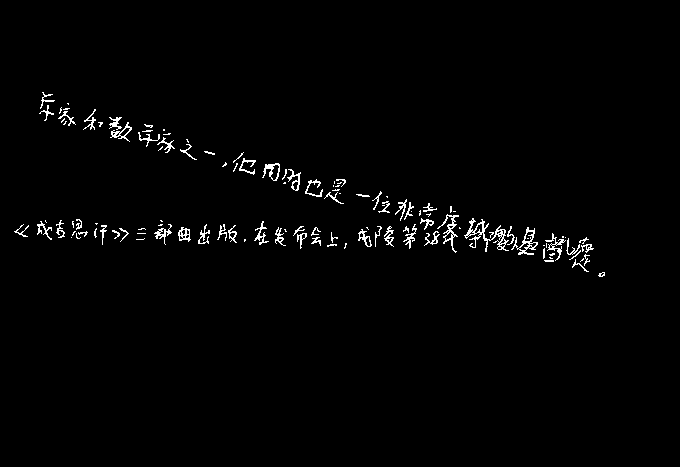 家和数学家之一,他同时也是一位非常虔
《成吉思汗》三部曲出版.在发布会上,成陵第38代